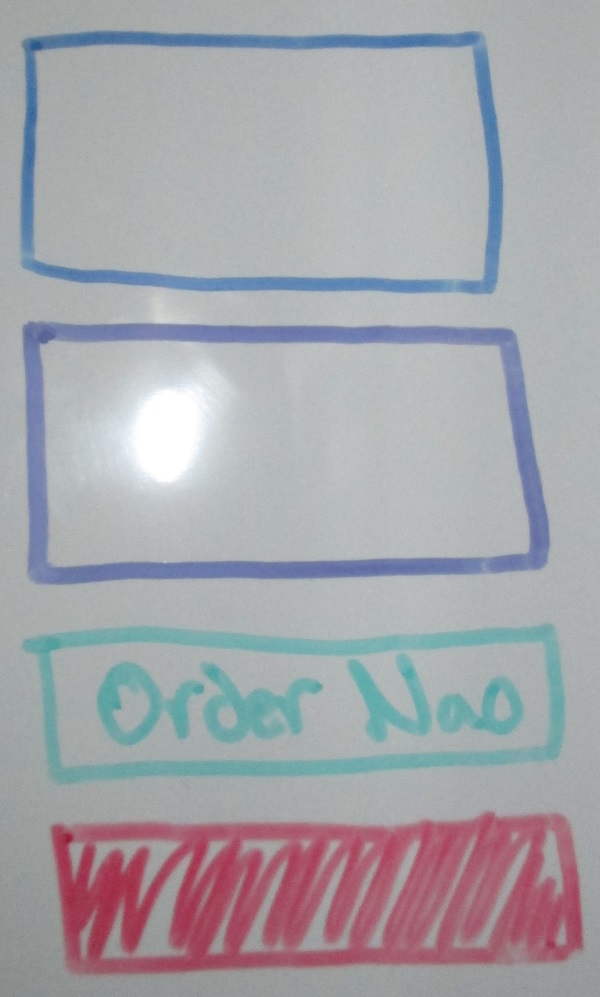 Order Nao